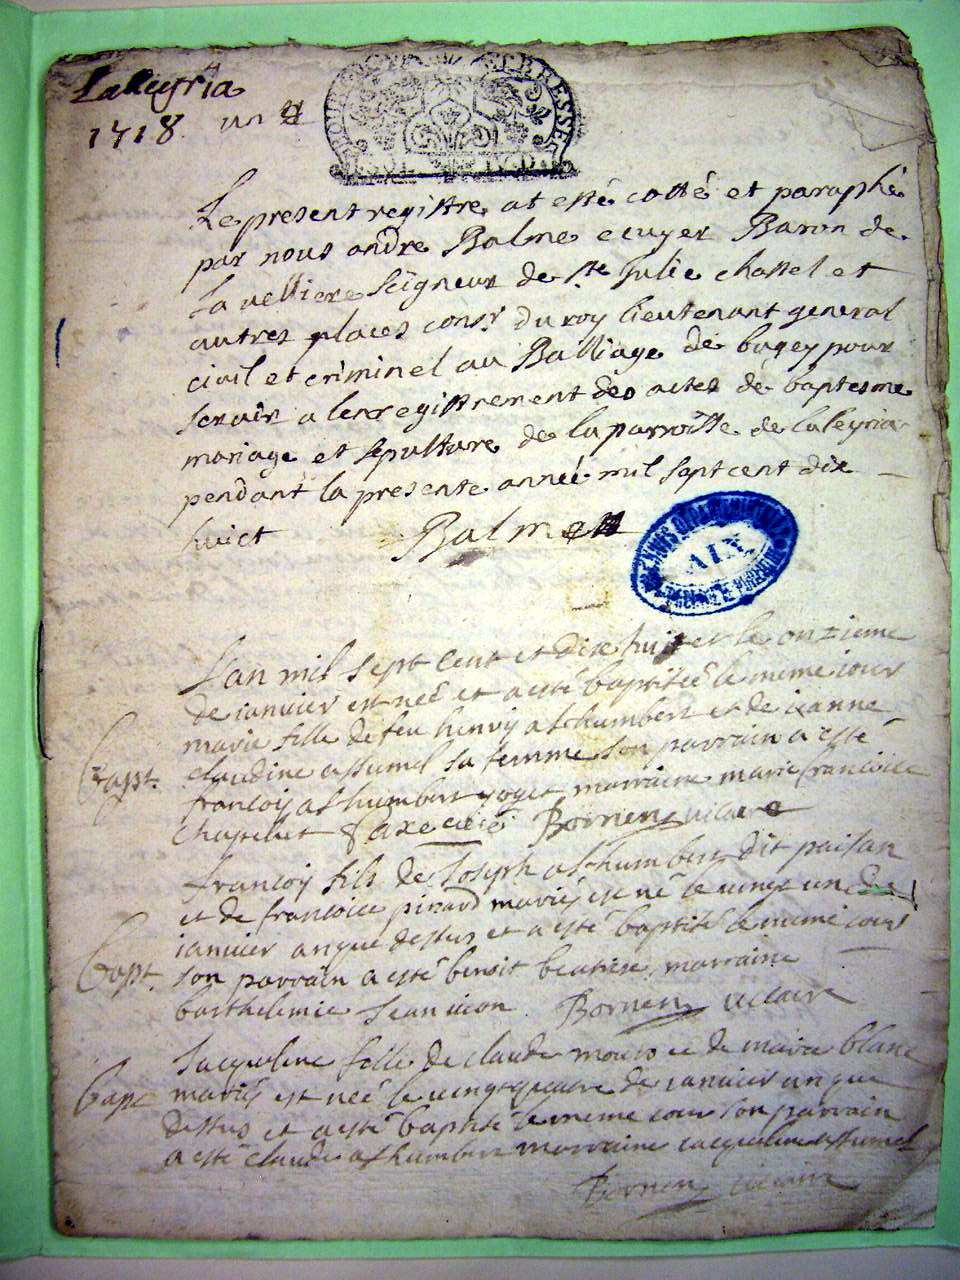 Laleyria
1718 un
BOURGOGNE ET BRESSE
Le present registre at esté cotté et paraphé
par nous andre Balme ecuyer Baron de
la velliere seigneur de Ste Julie chastel et
autres places consr. du roy lieutenant general
civil et criminel au Balliage de bugey pour
servir a lenregistrement des actes de baptesme
mariage et sepulture de la parroitte de laleyria
pendant la presente année mil sept cent dix
huict Balme
AIN
L'an mil sept cent et dix huit et le onzieme
de ianvier est neé et a esté baptiseé le meme iour
marie fille de feu henry althumbert et de ieanne
claudine assumel sa femme son parrain a esté
Bapt.
francois althumbert marraine marie francoise
chapelut Bornen vicaire
francois fils de Joseph althumbert dit paisan
et de francoise pinard mariés est né le vingt un de
ianvier an que dessus et a esté baptisé le meme iour
Bapt.
son parrain a esté benoit marraine
barthelemie Jeannon Bornen vicaire
Jacqueline fille de claude et de marie blanc
Bapt
mariés est née le vingtquatre de ianvier an que
dessus et a esté baptisé le meme iour son parrain
a esté claude althumbert marraine iacqueline assumel
Bornen vicaire